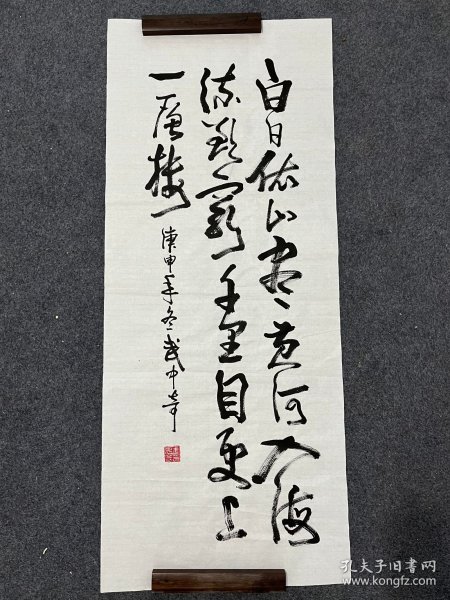 白日依山尽黄河入海
流欲穷千里目更上
一层楼
庚申年冬武中奇
孔夫子旧书网
www.kongfz.com